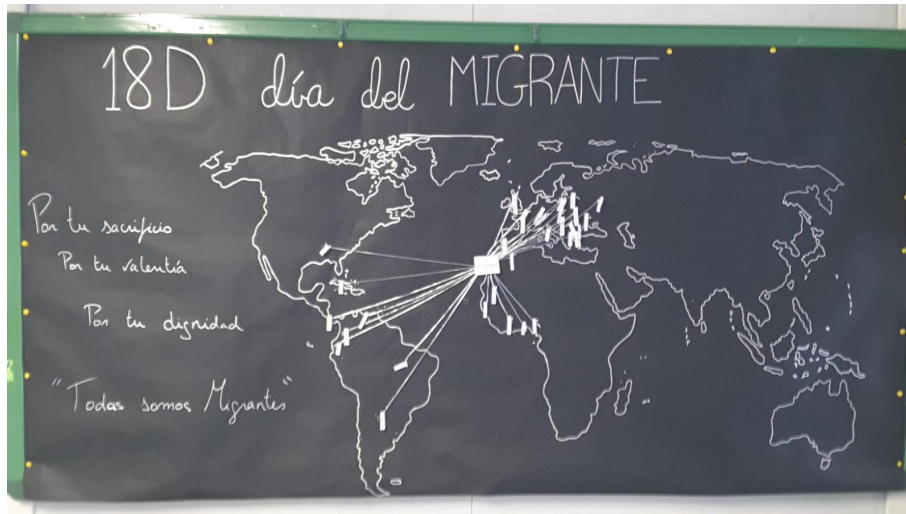 18D día del MIGRANTE
Por tu sacrificio
Por tu valentía
Por tu dignidad
"Todas somos Migrantes"